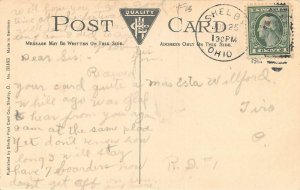 POST CARD
QUALITY
MESSAGE MAY BE WRITTEN ON THIS SIDE.
ADDRESS ONLY ON THIS SIDE.
SHELBY
130PM
OHIO
Made in Germany
No. 35893
Published by Shelby Post Card Co., Shelby, O.
Dear Sis.
Received
your card quite a
while ago was glad
to hear from you
am at the same place
Yet don't know how
long I will stay
have 7 boarders now
don't get off
Miss Esta Willford
Tiro
O.
R.D. #1